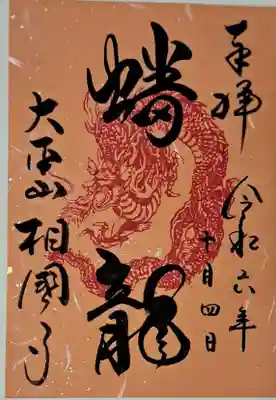 奉拝
令和六年
十月四日
蟠龍
大本山
相國寺